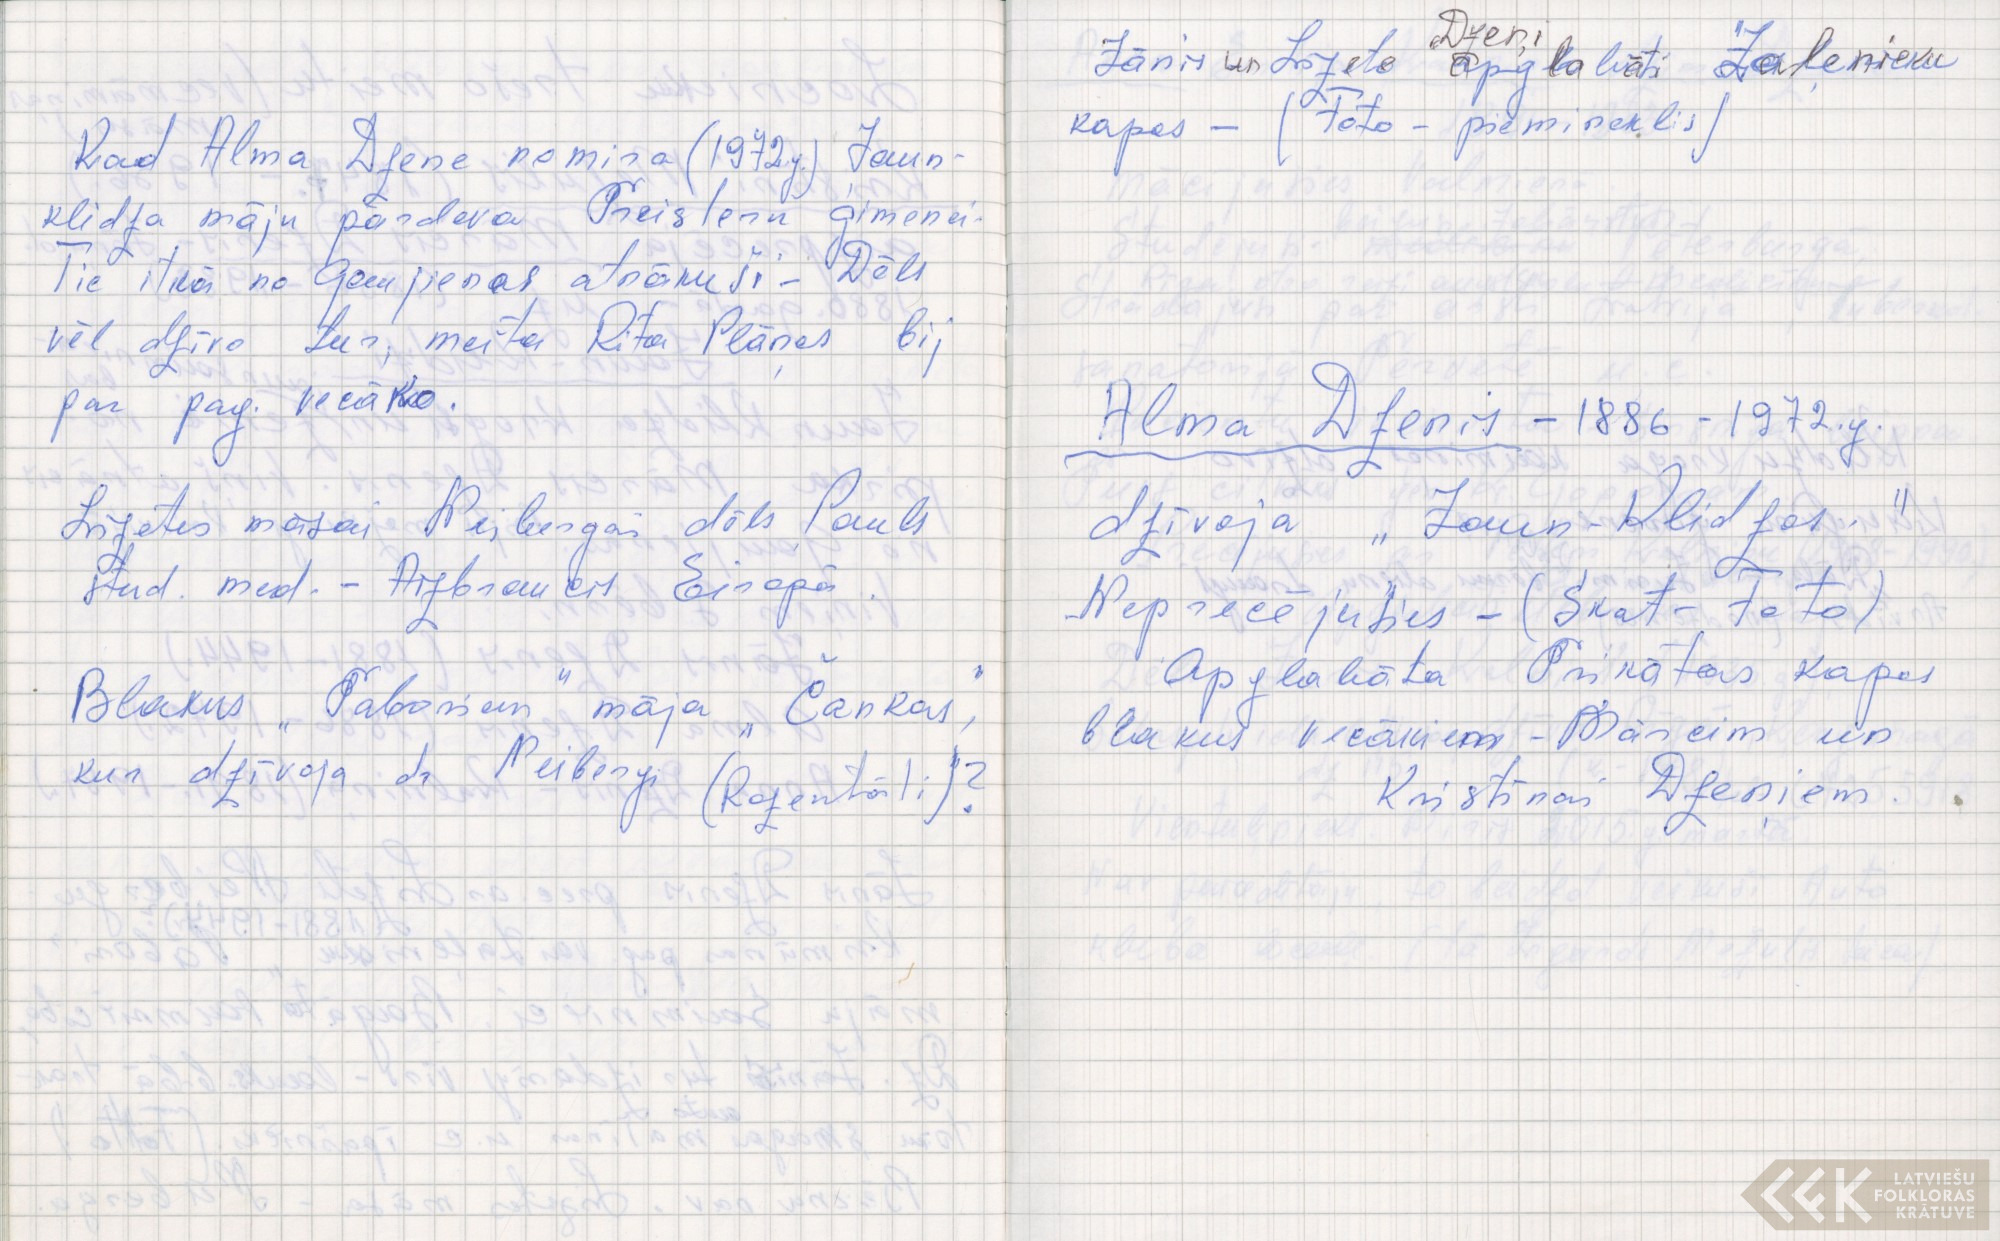 Kad Alma Dzene nomira (1972.g.) Jaun-
klidža māju pārdeva Preisleru ģimenei.
Tie itkā no Gaujienas atnākuši - Dēls
vēl dzīvo tur, meita Rita Plāņos bij
par pag. vecāko.
Līzetes māsai Neibergai dēls Pauls
stud. med. - Aizbraucis Eiropā.
Blakus „Taborien" māja „Čankas",
kur dzīvoja dr Neibergi (Rozentāli)"?
Dzeņi
Jānis un Līzete apglabāti Zaļenieku
kapos - (Foto - piemineklis)
Alma Dzenis - 1886 - 1972.g.
dzīvoja „Jaun-Klidžos."
Neprecējusies - (Skat- Foto)
Apglabāta Trikātas kapos
blakus vecākiem - Mārcim un
Kristīnai Dzeņiem.
LATVIEŠU
FOLKLORAS
KRĀTUVE